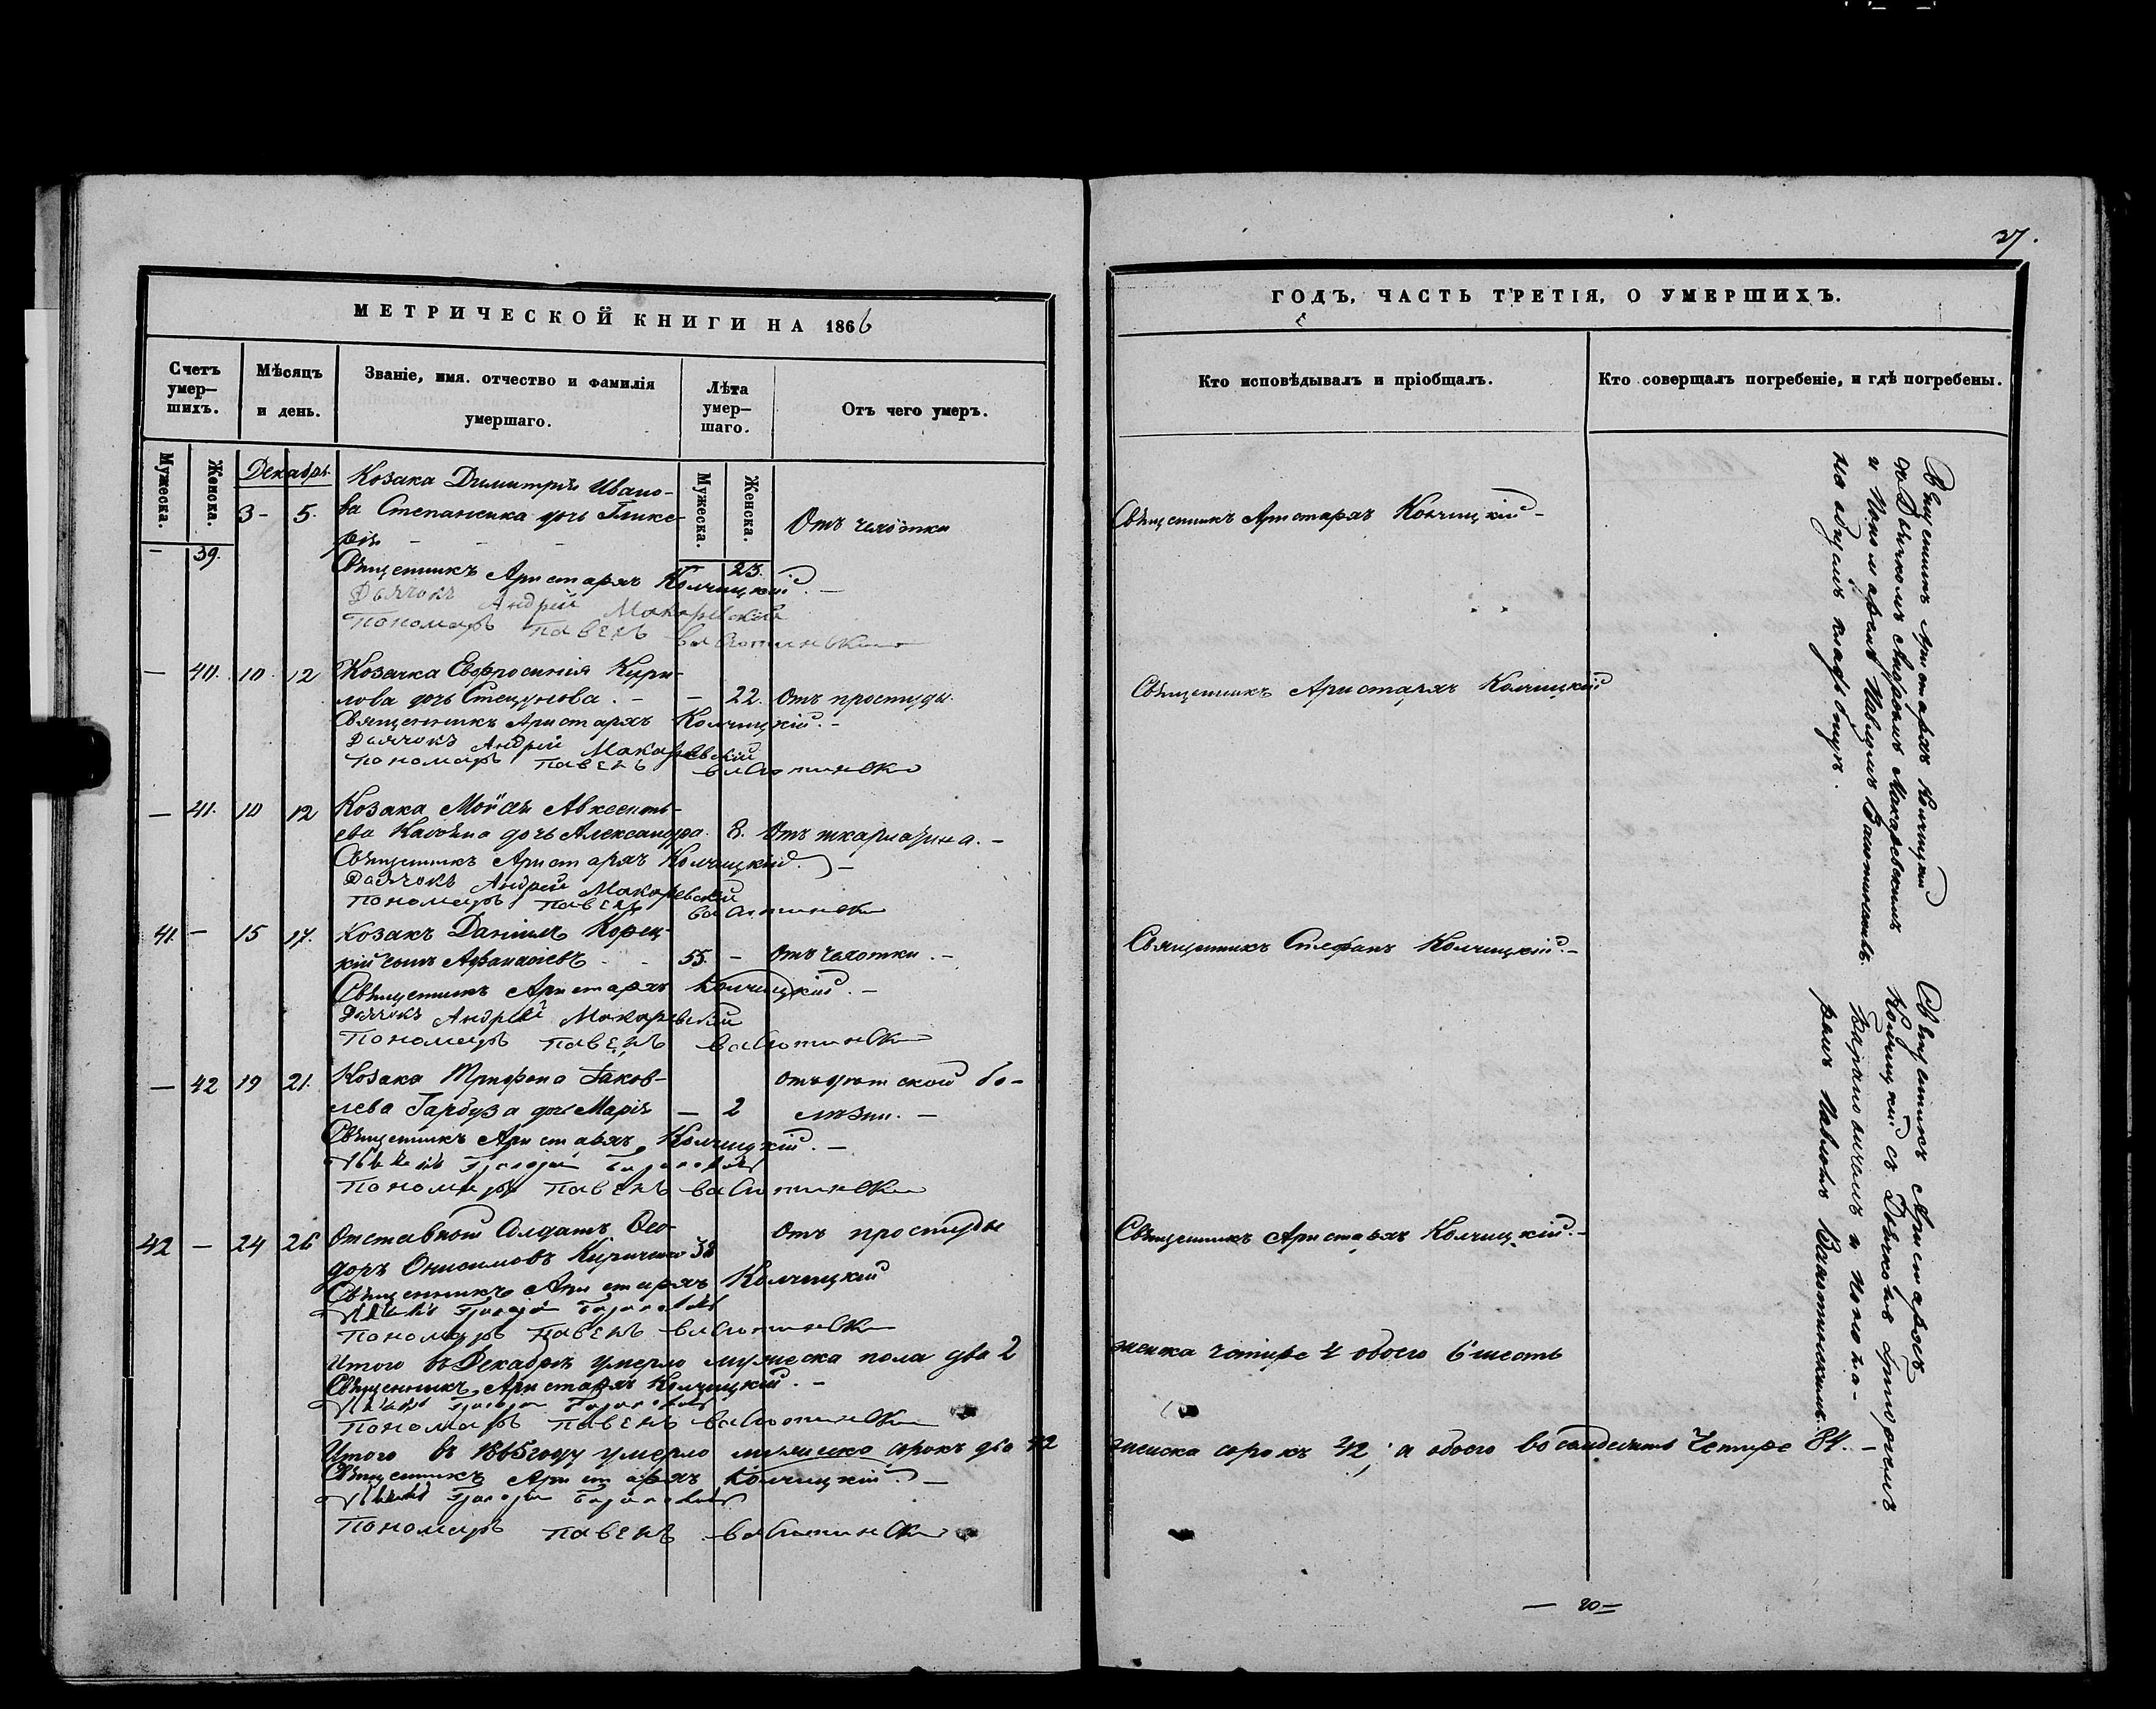 МЕТРИЧЕСКОЙ КНИГИ НА 1866
Счетъ умер-шихъ.
Мѣсяцъ и день.
Званіе, имя, отчество и фамилія умершаго.
Лѣта умер-шаго.
Отъ чего умеръ.
Мужеска. Женска.
Мужеска. Женска.
Декабрь
Козака Димитрія Ивано-
3 - 5. ва Степаненка дочь Глике-
рія - - - Отъ чахотки
- 39. 23.
Священникъ Аристархъ Колчицкій. -
Дьячокъ Андрей Макаревскій
Пономарь Павелъ
- 40. 10. 12 Козачка Евфросинія Кири-
лова дочь Стецунова. - - 22. Отъ простуды.
Священникъ Аристархъ Колчицкій. -
Дьячокъ Андрей Макаревскій
Пономарь Павелъ
- 41. 10 12 Козака Моѵсея Авксентъ-
ева дочь Александра. 8. Отъ шкарлатина. -
Священникъ Аристархъ Колчицкій. -
Дьячокъ Андрей Макаревскій
Пономарь Павелъ
41. - 15 17. Козакъ Даніилъ Корец-
кій сынъ Афанасіевъ - - 55. - Отъ чахотки. -
Священникъ Аристархъ Колчицкій. -
Дьячокъ Андрей Макаревскій
Пономарь Павелъ
- 42 19 21. Козака Трифона Іаков-
лева Гарбуза дочь Марія - 2 Отъ дѣтской бо-
лѣзни. -
Священникъ Аристархъ Колчицкій. -
Пономарь Павелъ
42 - 24 26 Отставной Солдатъ Ѳео-
доръ Онисимовъ Кириченко 38 Отъ простуды
Священникъ Аристархъ Колчицкій
Пономарь Павелъ
Итого въ Декабрѣ умерло мужеска пола два 2
Священникъ Аристархъ Колчицкій. -
Пономарь Павелъ
Итого въ 1865 году умерло мужеска сорокъ два 42
Священникъ Аристархъ Колчицкій. -
Пономарь Павелъ
27.
ГОДЪ, ЧАСТЬ ТРЕТІЯ, О УМЕРШИХЪ.
Кто исповѣдывалъ и пріобщалъ.
Кто совершалъ погребеніе, и гдѣ погребены.
Священникъ Аристархъ Колчицкій -
Священникъ Аристархъ Колчицкій
Священникъ Стефанъ Колчицкій. -
Священникъ Аристархъ Колчицкій. -
женска четыре 4 обоего 6 шесть
женска сорокъ 42, а обоего восемдесятъ Четыре 84. -
Священникъ Аристархъ Колчицкій
съ Дьячкомъ Андреемъ Макаревскимъ
и Пономаремъ Павломъ
на общемъ кладбищѣ.
Священникъ Аристархъ
Колчицкій съ Дьячкомъ Григоріемъ
и Понома-
ремъ Павломъ
- 20 -